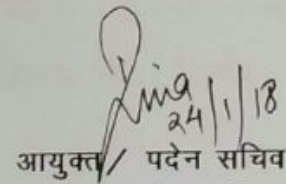 24/1/18
आयुक्त / पदेन सचिव